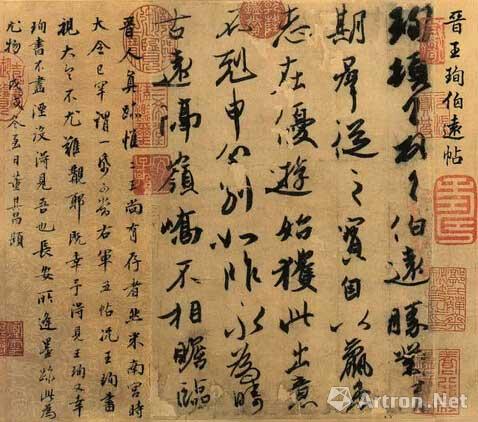 晉王珣伯遠帖
珣頓首頓首伯遠勝業情
期群從之寶自以羸患
志在優遊始獲此出意
不剋申分別如昨永為疇
古遠隔嶺嶠不相瞻臨
晉人真跡惟二王尚有存者然米南宮時
大令已罕謂一紙可當右軍五帖況王珣書
視大令不尤難覯耶既幸予得見王珣又幸
珣書不盡湮沒得見吾也長安所逢墨跡此為
尤物 戊戌冬至日董其昌題
Artron.Net